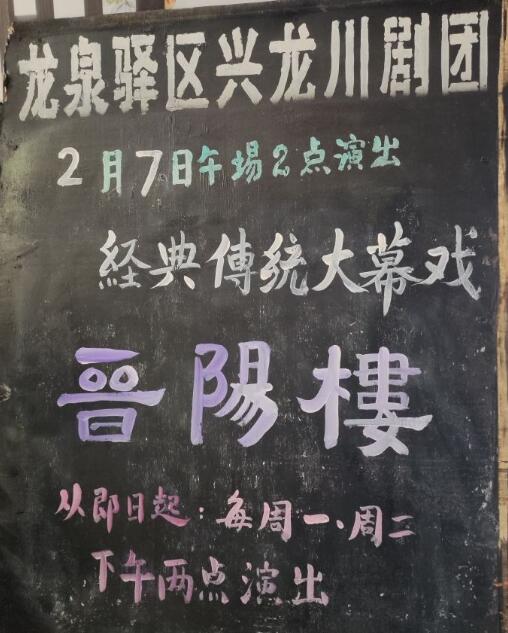 龙泉驿区兴龙川剧团
2月7日午場2点演出
経典傳統大幕戏
晉陽樓
从即日起：每周一、周二
下午两点演出